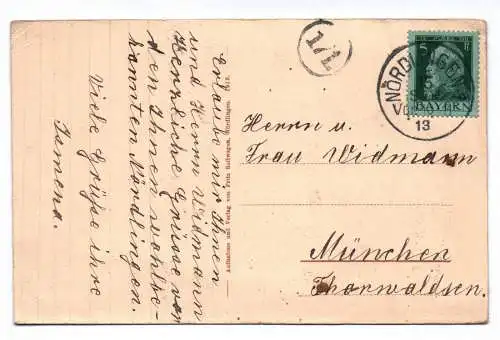 Erlaube mir Ihnen
und Herrn Widmann
Herzliche Grüsse von
den Ihnen wohlbe-
kannten Nördlingen.
Viele Grüße ihre
Aufnahme und Verlag von Fritz
Nördlingen.
1/1
NÖRDLINGEN
13
5
BAYERN
Herrn u.
Frau Widmann
München
Thorwaldsen.